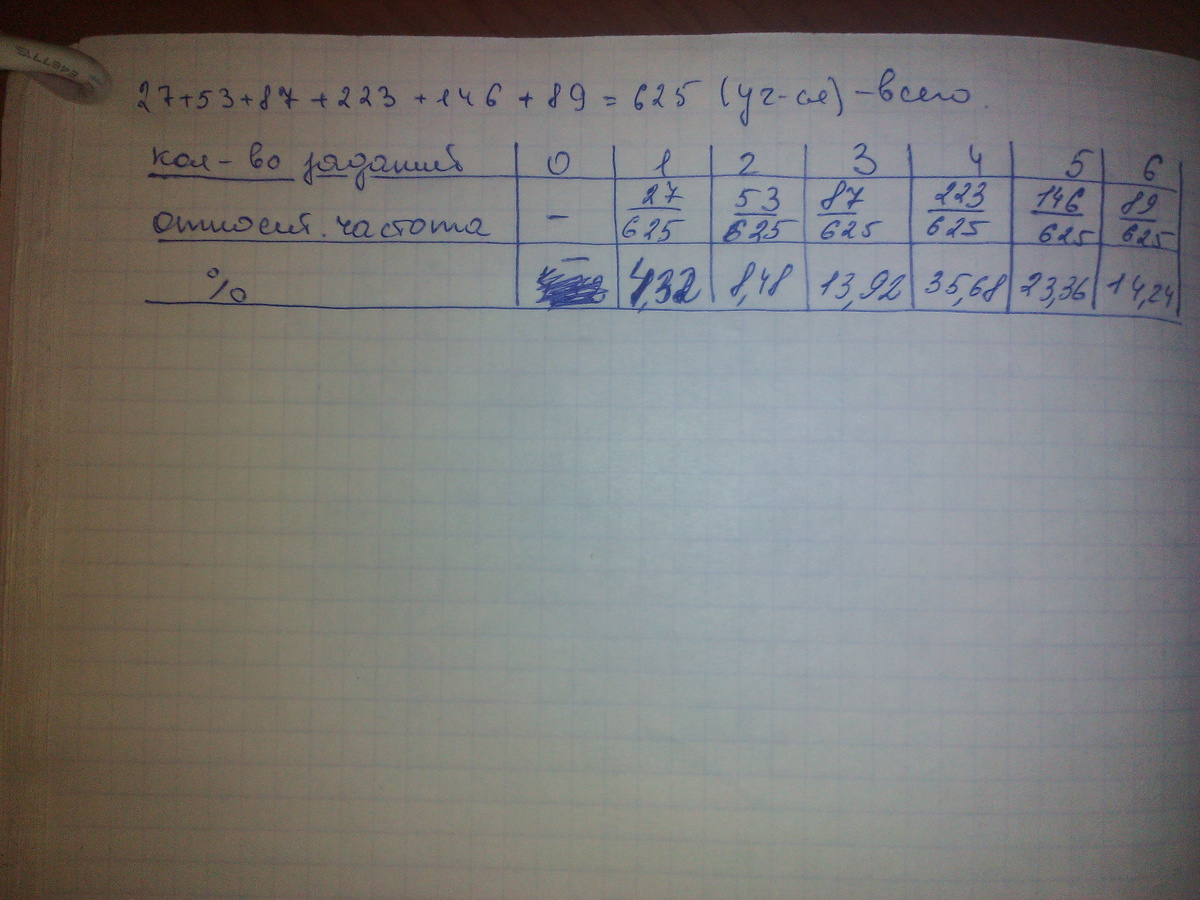 E467715
27+53+87+223+146+89=625 (уч-ся) - всего.
кол-во заданий 0 1 2 3 4 5 6
относит. частота - 27/625 53/625 87/625 223/625 146/625 89/625
% - 4,32 8,48 13,92 35,68 23,36 14,24